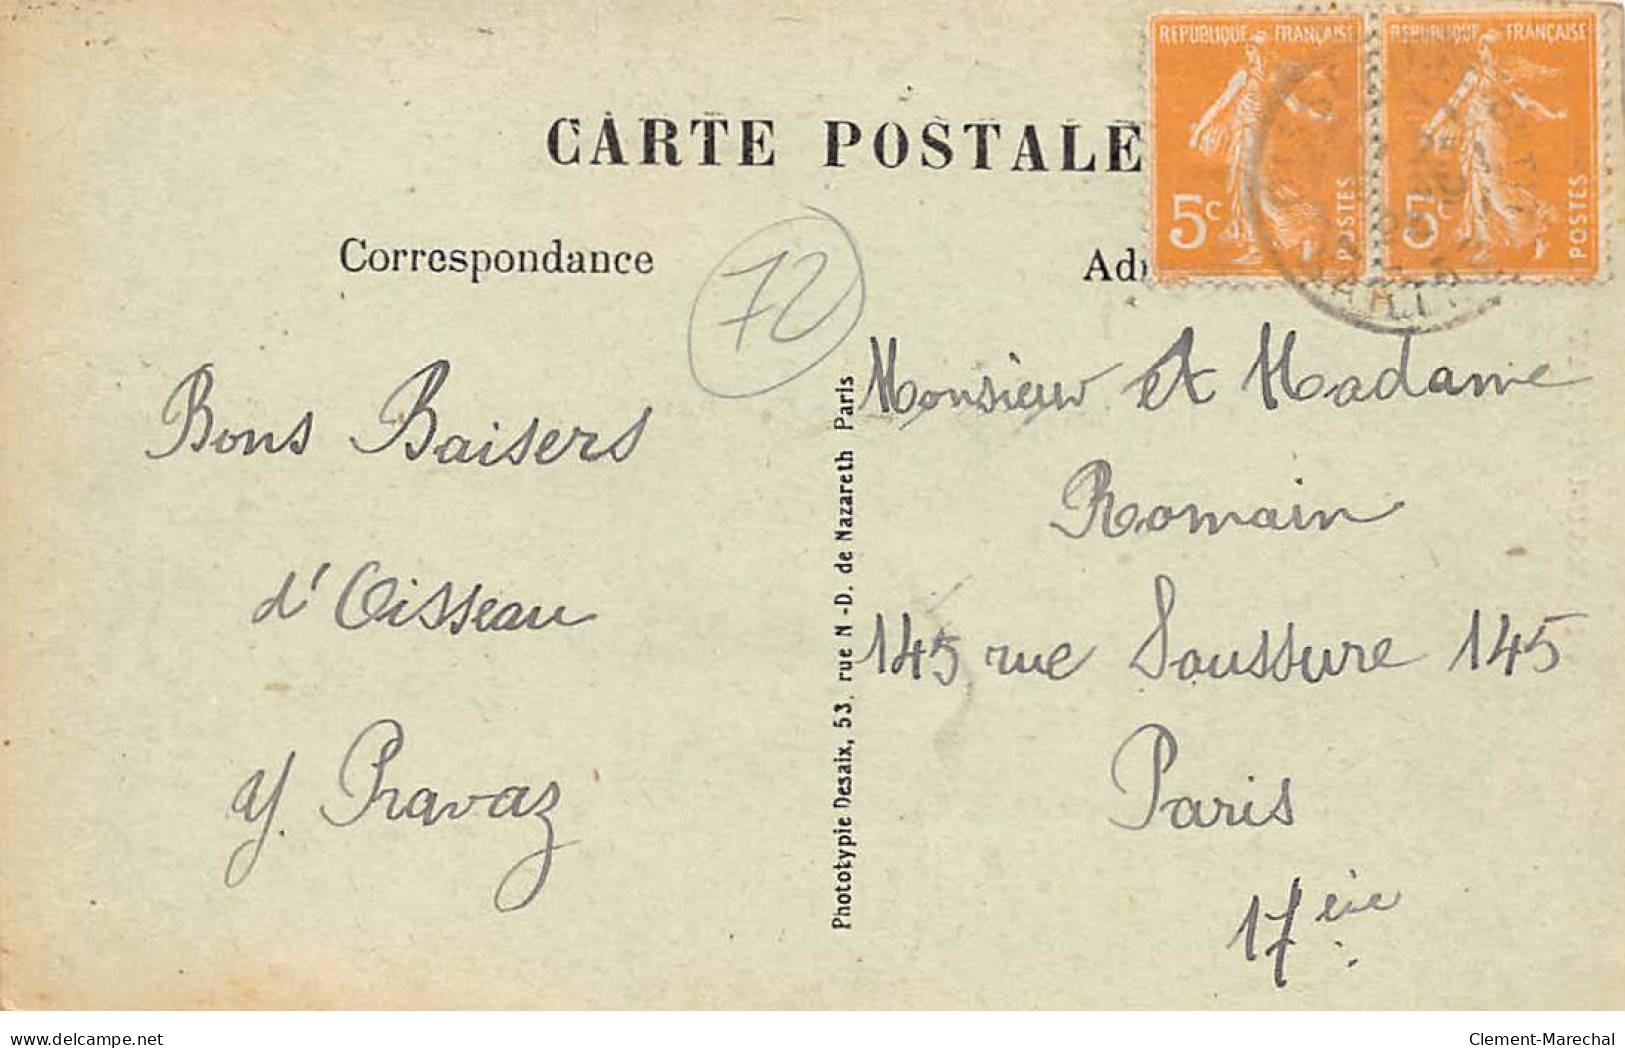 CARTE POSTALE
RÉPUBLIQUE FRANÇAISE
5c
POSTES
RÉPUBLIQUE FRANÇAISE
5c
POSTES
Correspondance
72
Bons Baisers
d'Oisseau
Y. Pravaz
Phototypie Desaix, 53, rue N-D. de Nazareth Paris
Monsieur et Madame
Romain
145 rue Saussure 145
Paris
17ème
delcampe.net
Clement-Marechal